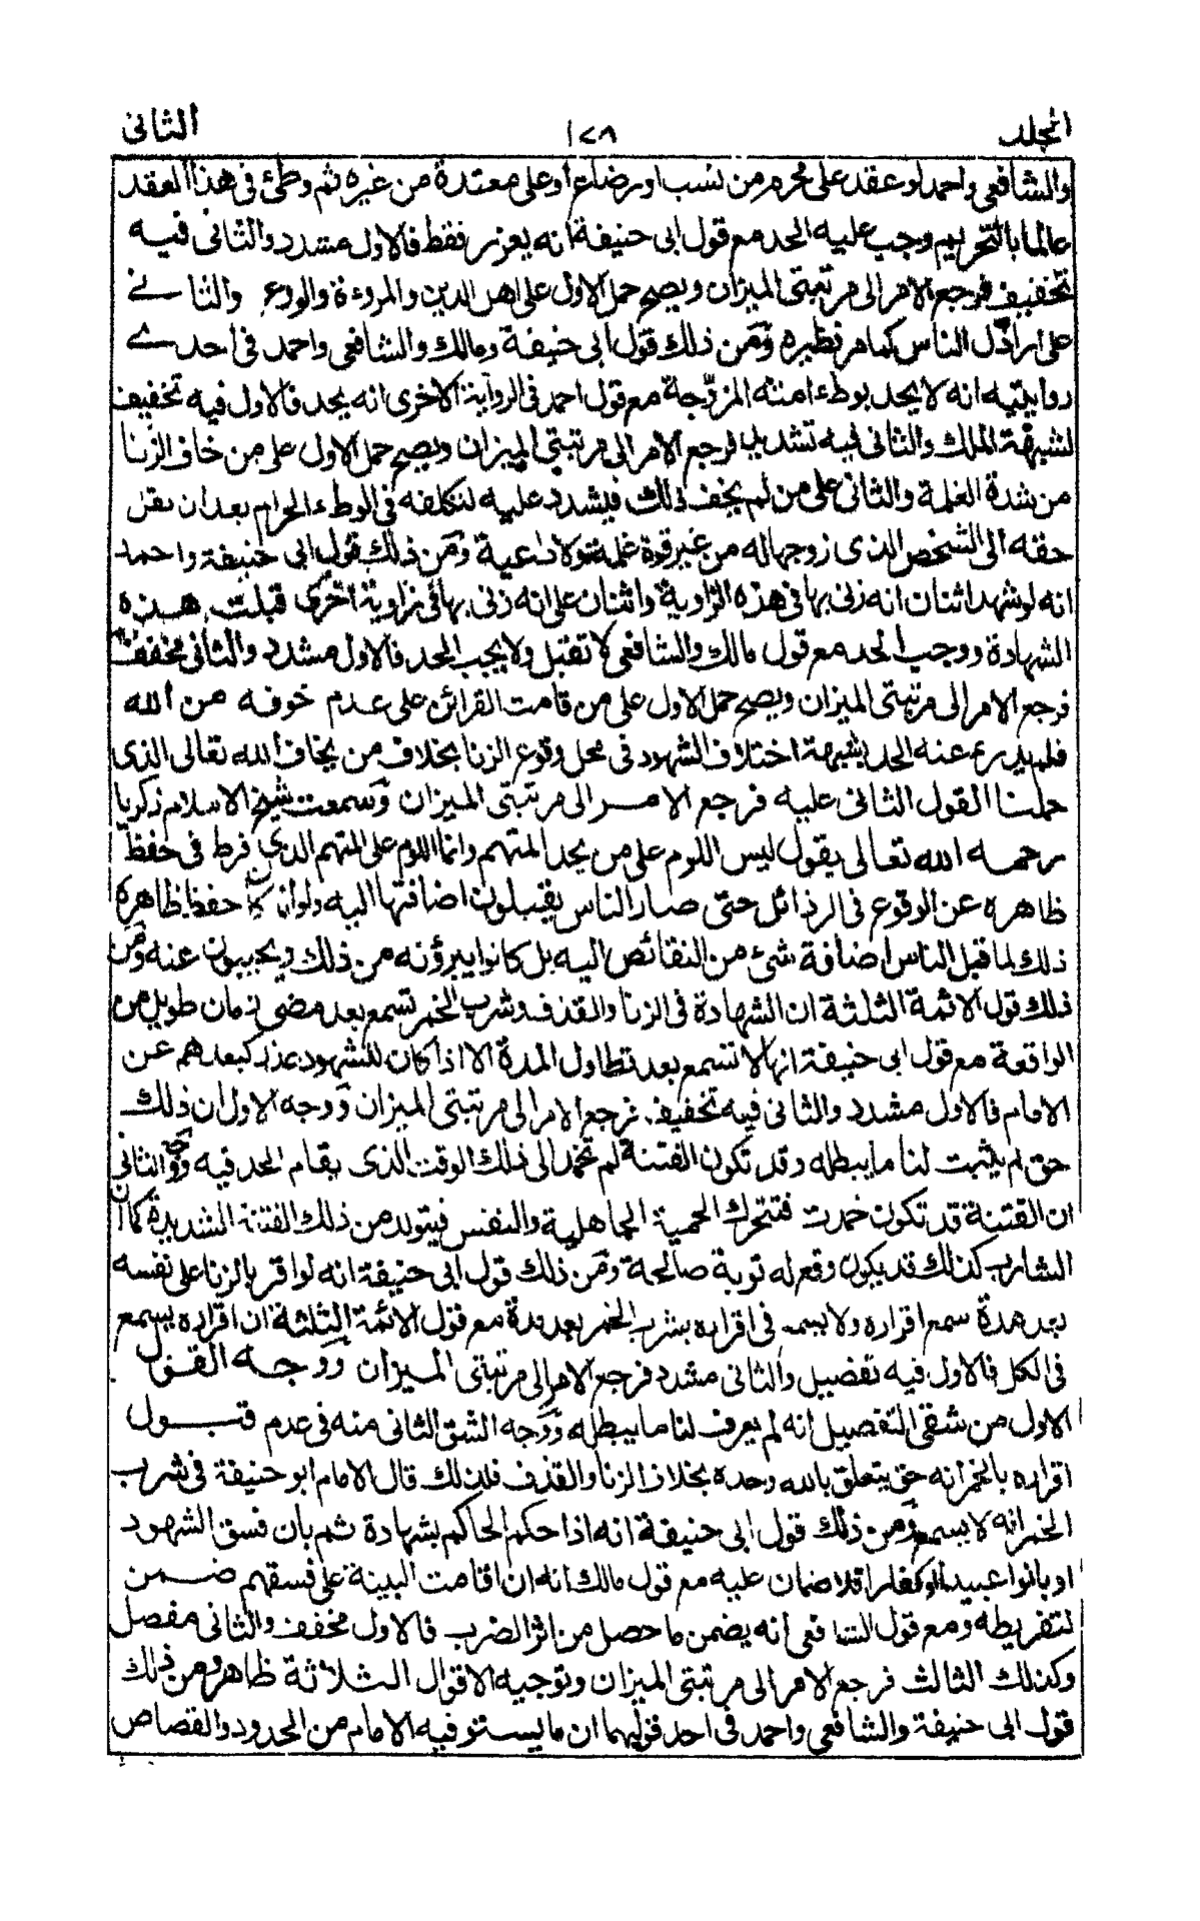 المجلد ١٧٨ الثانى
والشافعى واحمد لو عقد على محرم من نسب او رضاع او على معتدة من غيره ثم وطئ فى هذا العقد
عالما بالتحريم وجب عليه الحد مع قول ابى حنيفة انه يعزر فقط فالاول مشدد والثانى فيه
تخفيف فرجع الامر الى مرتبتى الميزان ويصح حمل الاول على اهل الدين والمروءة والورع والثانے
على اراذل الناس كما مر نظيره ومن ذلك قول ابى حنيفة ومالك والشافعى واحمد فى احدے
روايتيه انه لا يحد بوطء امته المزوجة مع قول احمد فى الرواية الاخرى انه يحد فالاول فيه تخفيف
لشبهة الملك والثانى فيه تشديد فرجع الامر الى مرتبتى الميزان ويصح حمل الاول على من خاف الزنا
من شدة الغلمة والثانى على من لم يخف ذلك فيشدد عليه لتكلفه فى الوطء الحرام بعد ان نقل
حقه الى الشخص الذى زوجها له من غير قوة غلمة ولا داعية ومن ذلك قول ابى حنيفة واحمد
انه لو شهد اثنان انه زنى بها فى هذه الزاوية واثنان على انه زنى بها فى زاوية اخرى قبلت هذه
الشهادة ووجب الحد مع قول مالك والشافعى لا تقبل ولا يجب الحد فالاول مشدد والثانى مخفف
فرجع الامر الى مرتبتى الميزان ويصح حمل الاول على من قامت القرائن على عدم خوفه من الله
فلم يدرء عنه الحد بشبهة اختلاف الشهود فى محل وقوع الزنا بخلاف من يخاف الله تعالى الذى
حملنا القول الثانى عليه فرجع الامر الى مرتبتى الميزان وسمعت شيخ الاسلام زكريا
رحمه الله تعالى يقول ليس اللوم على من يحد المتهم وانما اللوم على المتهم الذى فرط فى حفظ
ظاهره عن الوقوع فى الرذائل حتى صار الناس يقبلون اضافتها اليه ولو انه كان حفظ ظاهره
ذلك لما قبل الناس اضافة شئ من النقائص اليه بل كانوا يبرؤنه من ذلك ويجيبون عنه ومن
ذلك قول الائمة الثلثة ان الشهادة فى الزنا والقذف وشرب الخمر تسمع بعد مضى زمان طويل من
الواقعة مع قول ابى حنيفة انها لا تسمع بعد تطاول المدة الا اذا كان للشهود عذر كبعدهم عن
الامام فالاول مشدد والثانى فيه تخفيف فرجع الامر الى مرتبتى الميزان ووجه الاول ان ذلك
حق لم يثبت لنا ما يبطله وقد تكون الفتنة لم تخمد الى ذلك الوقت الذى يقام الحد فيه ووجه الثانى
ان الفتنة قد تكون خمدت فتتحرك الحمية الجاهلية والنفس فيتولد من ذلك الفتنة الشديدة كما ان
الشارب كذلك قد يكون وقع له توبة صالحة ومن ذلك قول ابى حنيفة انه لو اقر بالزنا على نفسه
بعد مدة سمع اقراره ولا يسمع فى اقراره بشرب الخمر بعد مدة مع قول الائمة الثلثة ان اقراره يسمع
فى الكل فالاول فيه تفصيل والثانى مشدد فرجع الامر الى مرتبتى الميزان ووجه القول
الاول من شقى التفصيل انه لم يعرف لنا ما يبطله ووجه الشق الثانى منه فى عدم قبول
اقراره بالخمر انه حق يتعلق بالله وحده بخلاف الزنا والقذف فلذلك قال الامام ابو حنيفة فى شرب
الخمر انه لا يسمع ومن ذلك قول ابى حنيفة انه اذا حكم الحاكم بشهادة ثم بان فسق الشهود
او بانوا عبيدا او كفارا فلا ضمان عليه مع قول مالك انه ان اقامت البينة على فسقهم ضمن
لتفريطه ومع قول الشافعى انه يضمن ما حصل من اثر الضرب فالاول مخفف والثانى مفصل
وكذلك الثالث فرجع الامر الى مرتبتى الميزان وتوجيه الاقوال الثلاثة ظاهر ومن ذلك
قول ابى حنيفة والشافعى واحمد فى احد قوليهما ان ما يستوفيه الامام من الحدود والقصاص